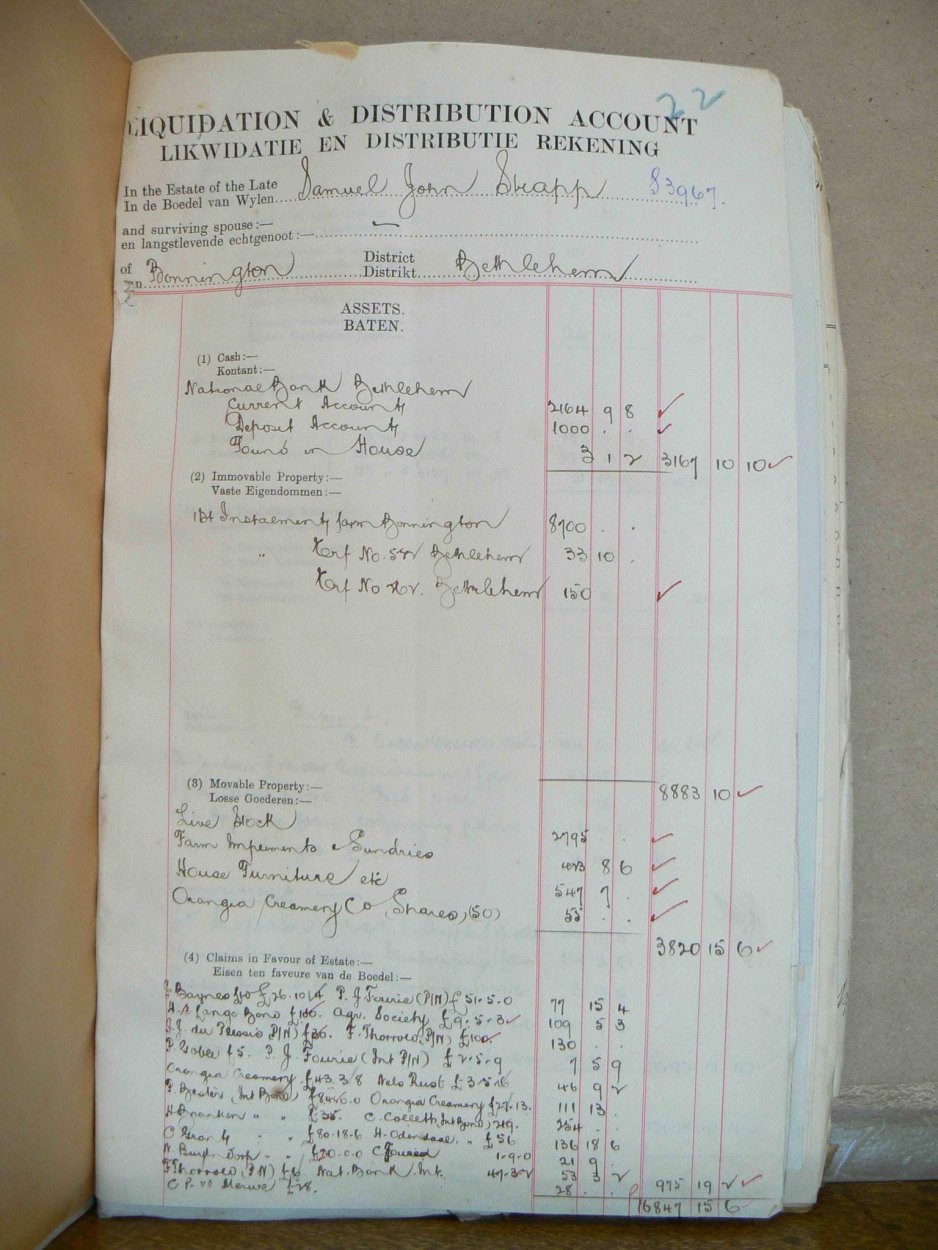 22
LIQUIDATION & DISTRIBUTION ACCOUNT
LIKWIDATIE EN DISTRIBUTIE REKENING
In the Estate of the Late Samuel John Strapp S3967.
In de Boedel van Wylen
and surviving spouse:— —
en langstlevende echtgenoot:—
of Bonnington District Bethlehem
Distrikt
ASSETS.
BATEN.
(1) Cash:—
Kontant:—
National Bank Bethlehem
Current Account 2164 9 8
Deposit Account 1000 . .
Found in House 3 1 2 3167 10 10
(2) Immovable Property:—
Vaste Eigendommen:—
1st Instalment farm Bonnington 8700 . .
" Erf No. Bethlehem 33 10 .
Erf No Bethlehem 150
(3) Movable Property:— 8883 10
Losse Goederen:—
Live Stock 2795 . .
Farm Impements & Sundries 423 8 6
House Furniture etc 547 7 .
Orangia Creamery Co Shares (50) 55 . .
3820 15 6
(4) Claims in Favour of Estate:—
Eisen ten faveure van de Boedel:—
J Baynes £26.10/4 P. J Fourie (P/N) £51.5.0 77 15 4
Lange Bond £100. Agr. Society £9.5.3 109 5 3
J.J. du Plessis P/N) £30. F. Thorrold P/N) £100. 130 . .
P. £5. P. J. Fourie (Int P/N) £2.5.9 7 5 9
Orangia Creamery £43.3/8 Nels Rust £3.5/6 46 9 2
P. Bester (Int Bond) Orangia Creamery £27.13. 111 13 .
" " £35. C. Collett, Int Bond, 219. 254 . .
C " " £80.18.6 H. Odendaal. " £56 136 18 6
" " £20.0.0 C 1.9.0 21 9 .
F Thorrold (P/N) £6. Nat. Bank Int. 47.3.2 53 3 2
C P. vd Merwe £28. 28 . . 975 19 2
16847 15 6